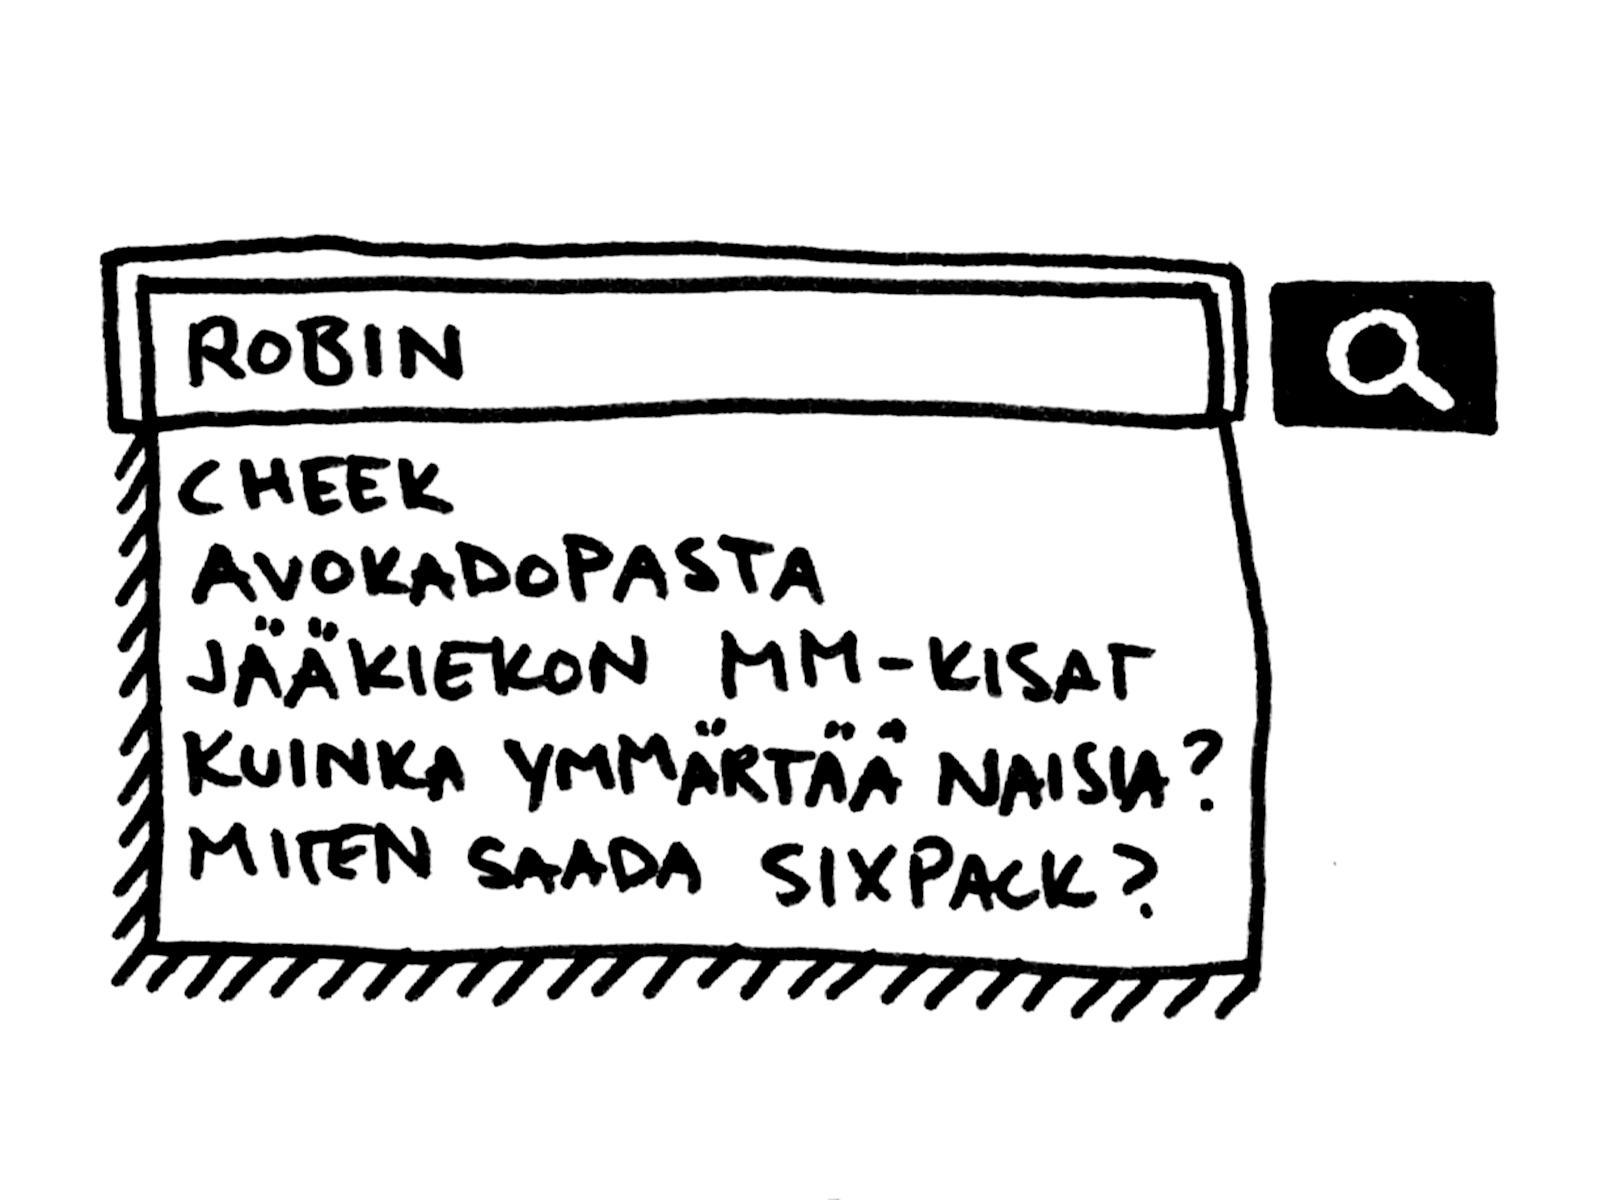 ROBIN
CHEEK
AVOKADOPASTA
JÄÄKIEKON MM-KISAT
KUINKA YMMÄRTÄÄ NAISIA?
MITEN SAADA SIXPACK?